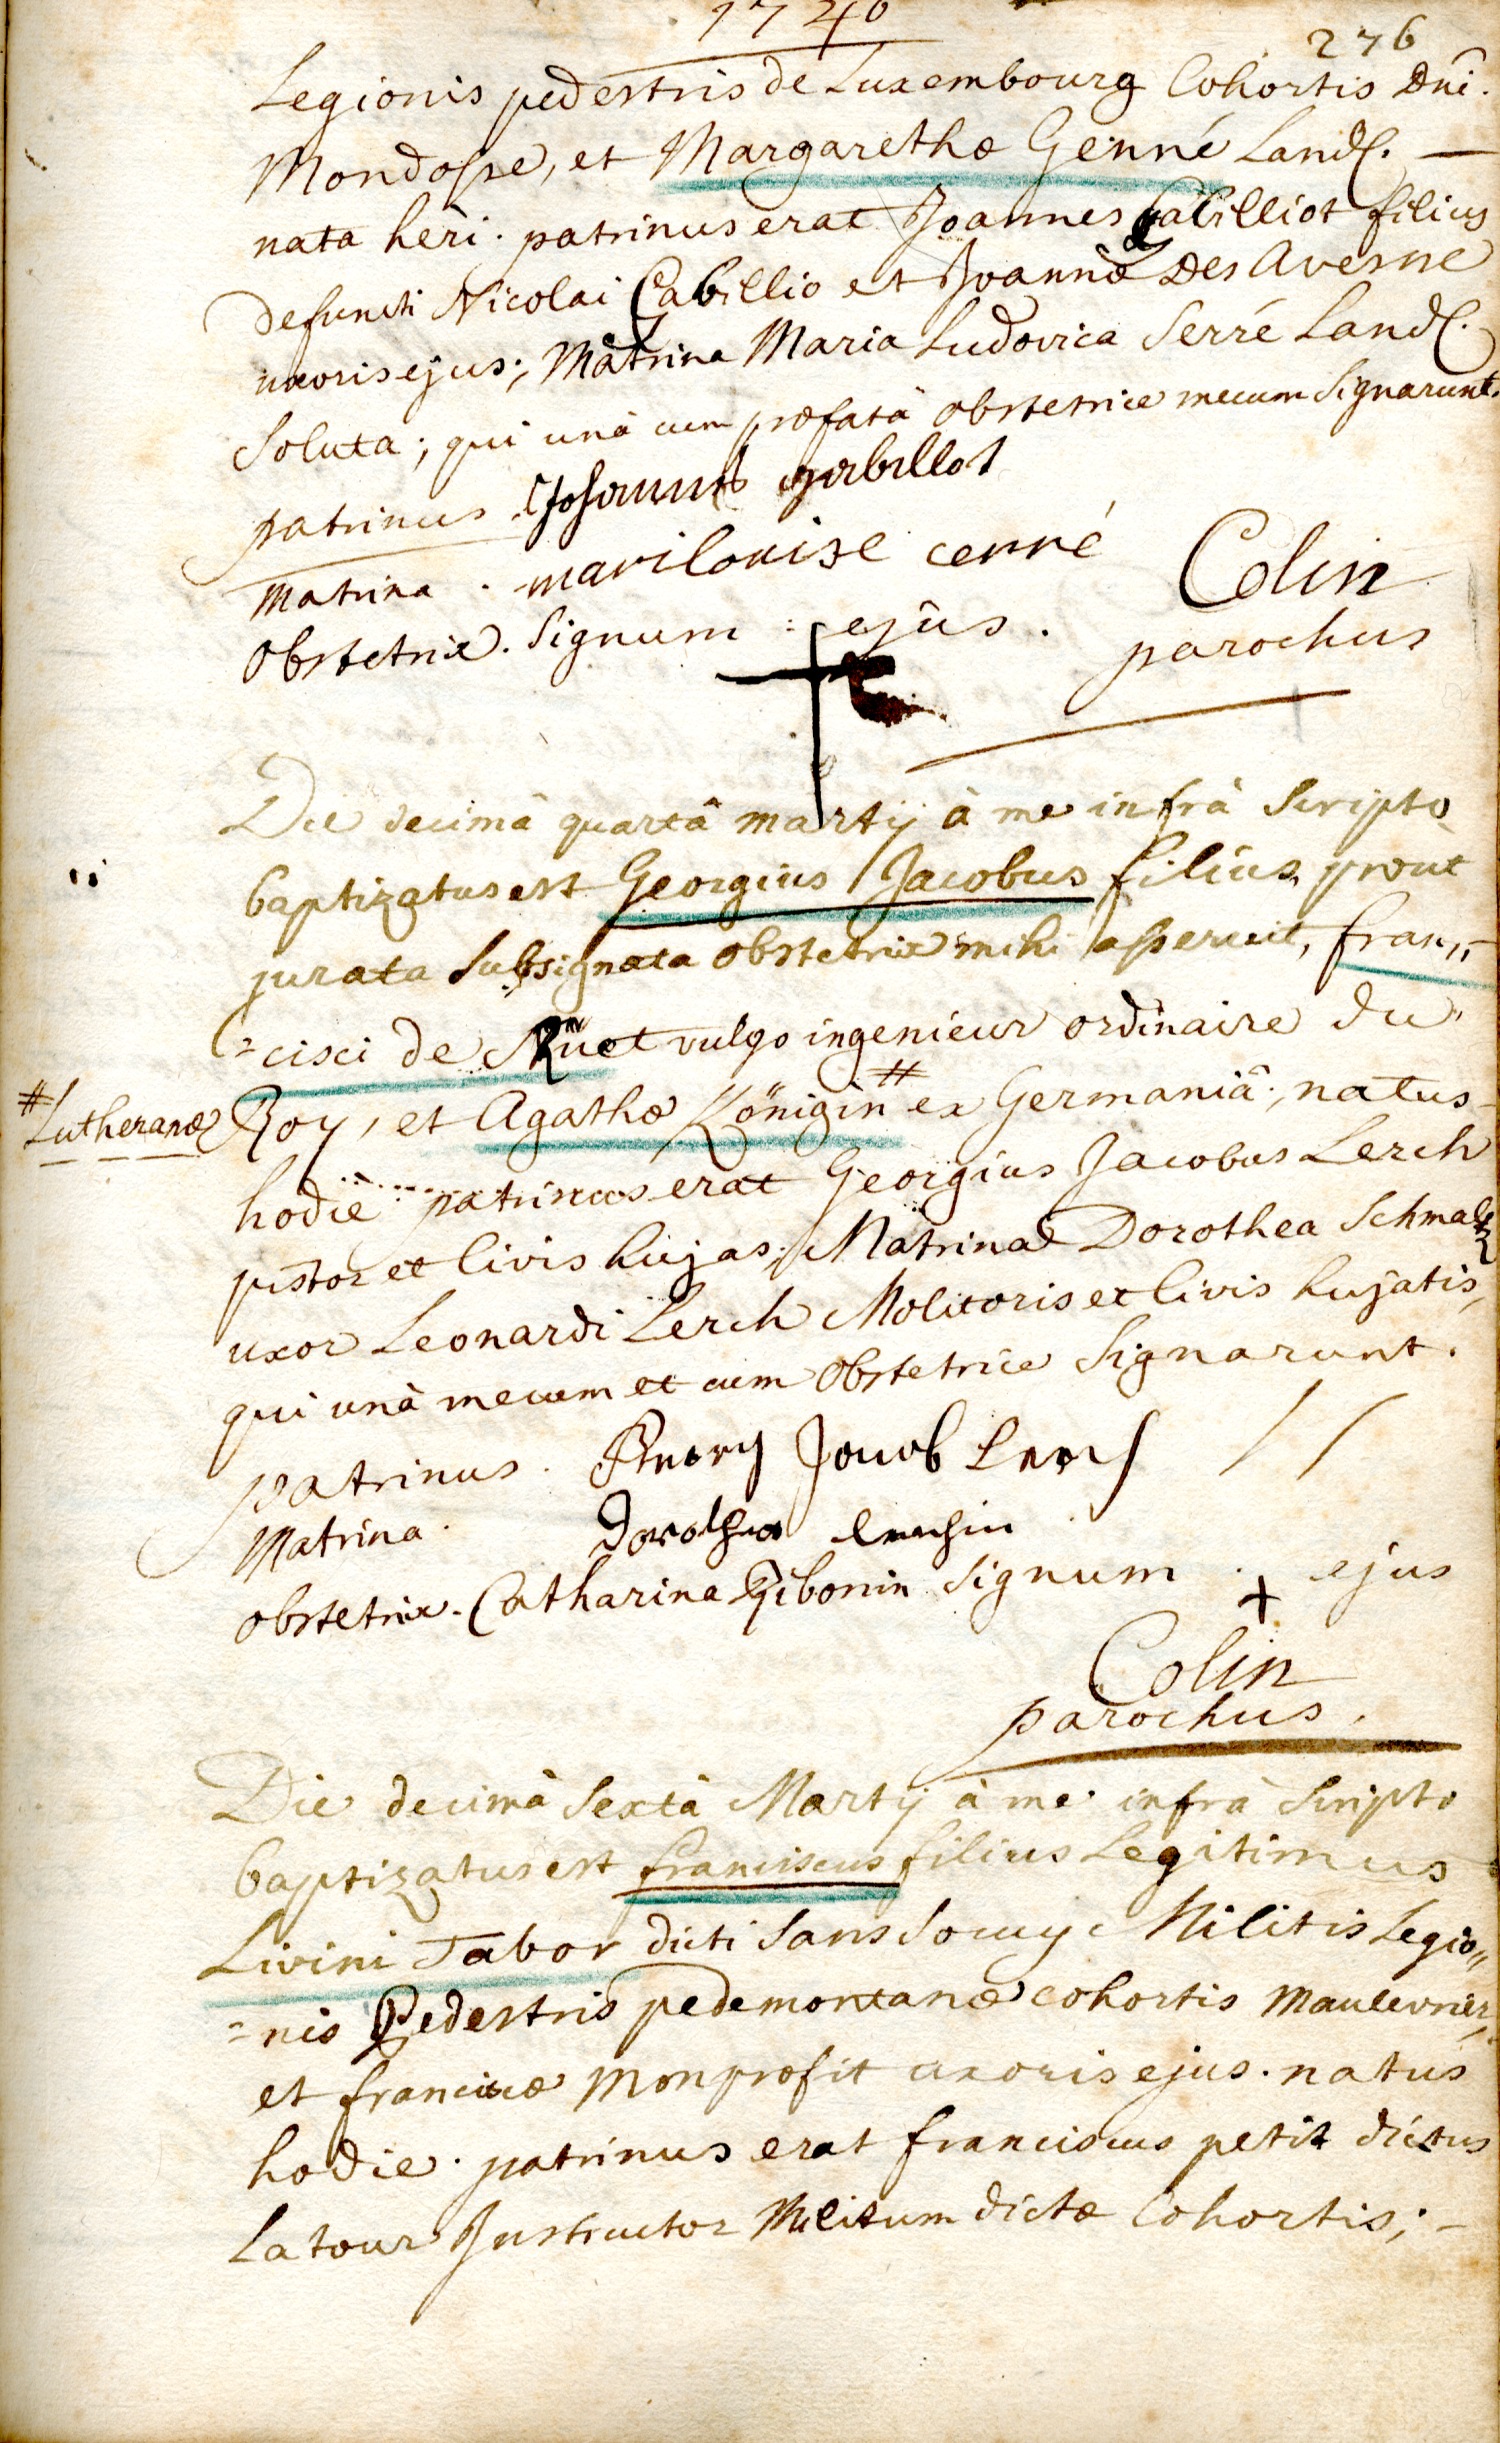 1740
276
Legionis pedestris de Luxembourg Cohortis Dni.
Mondosse, et Margarethæ Genné Land.
nata heri. patrinus erat Joannes Cabilliot filius
defuncti Nicolai Cabillio et Joannæ Des Avesne
uxoris ejus; Matrina Maria Ludovica Serré Land.
Soluta; qui unà cum præfatâ obstetrice mecum Signarunt.
patrinus Johannes gabillot
Matrina . marilouise cerré
Obstetrix. Signum : ejus.
Colin
parochus
Die decimâ quartâ martij à me infrà Scripto
baptizatus est Georgius Jacobus filius, prout
jurata Subsignata obstetrix mihi asseruit, fran,,
=cisci de Rüet vulgo ingenieur ordinaire du
Roy, et Agathæ Königin # ex Germaniâ; natus
# Lutheranæ
hodie patrinus erat Georgius Jacobus Lerch
pistor et Civis hujas; Matrina Dorothea Schmaltz
uxor Leonardi Lerch Molitoris et Civis hujatis,
qui unà mecum et cum Obstetrice Signarunt.
patrinus. Georg Jacob Lerch
Matrina. Dorothea Lerchin
obstetrix. Catharina Gibonin Signum + ejus
Colin
parochus.
Die decimà Sextà Martij à me infrà Scripto
baptizatus est franciscus filius Legitimus
Livini Tabor dicti Sans Soucy Militis Legio,,
=nis Pedestris pedemontanæ cohortis Maulevrier,
et franciscæ Monprofit uxoris ejus. natus
hodie. patrinus erat franciscus petit dictus
La tour Instructor Militum dictæ Cohortis;